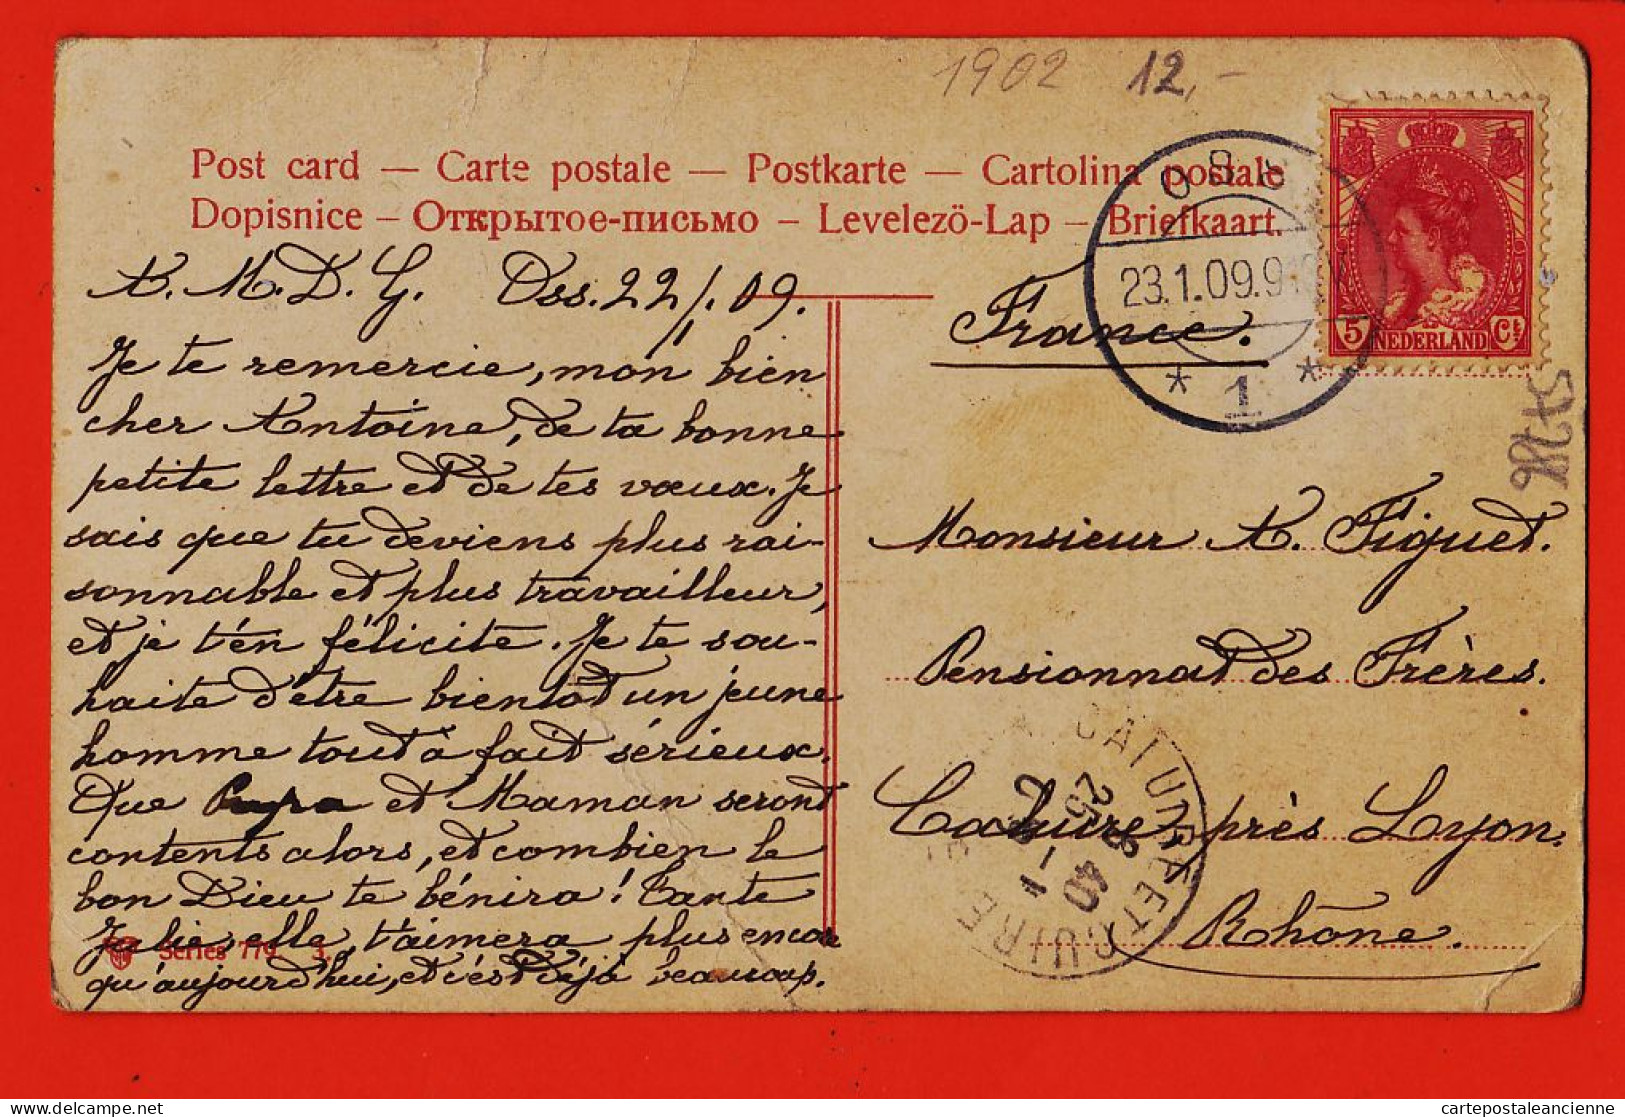 1902 12,-
Post card — Carte postale — Postkarte — Cartolina postale
Dopisnice — Открытое-письмо — Levelező-Lap — Briefkaart.
OSS
23.1.09.9
* 1 *
5 NEDERLAND Ct
A. M. D. G. Oss. 22/1.09.
Je te remercie, mon bien
cher Antoine, de ta bonne
petite lettre et de tes vœux. Je
sais que tu deviens plus rai-
sonnable et plus travailleur,
et je t'en félicite. Je te sou-
haite d'être bientôt un jeune
homme tout à fait sérieux.
Que Papa et Maman seront
contents alors, et combien le
bon Dieu te bénira! Tante
Julie, elle, t'aimera plus encore
qu'aujourd'hui, et c'est déjà beaucoup.
Series 779 3.
France.
Monsieur A. Figuet.
Pensionnat des Frères.
Caluire, près Lyon.
Rhône.
CALUIRE ET CUIRE
25 -1
40
cartepostaleancienne.com
cartepostaleancienne